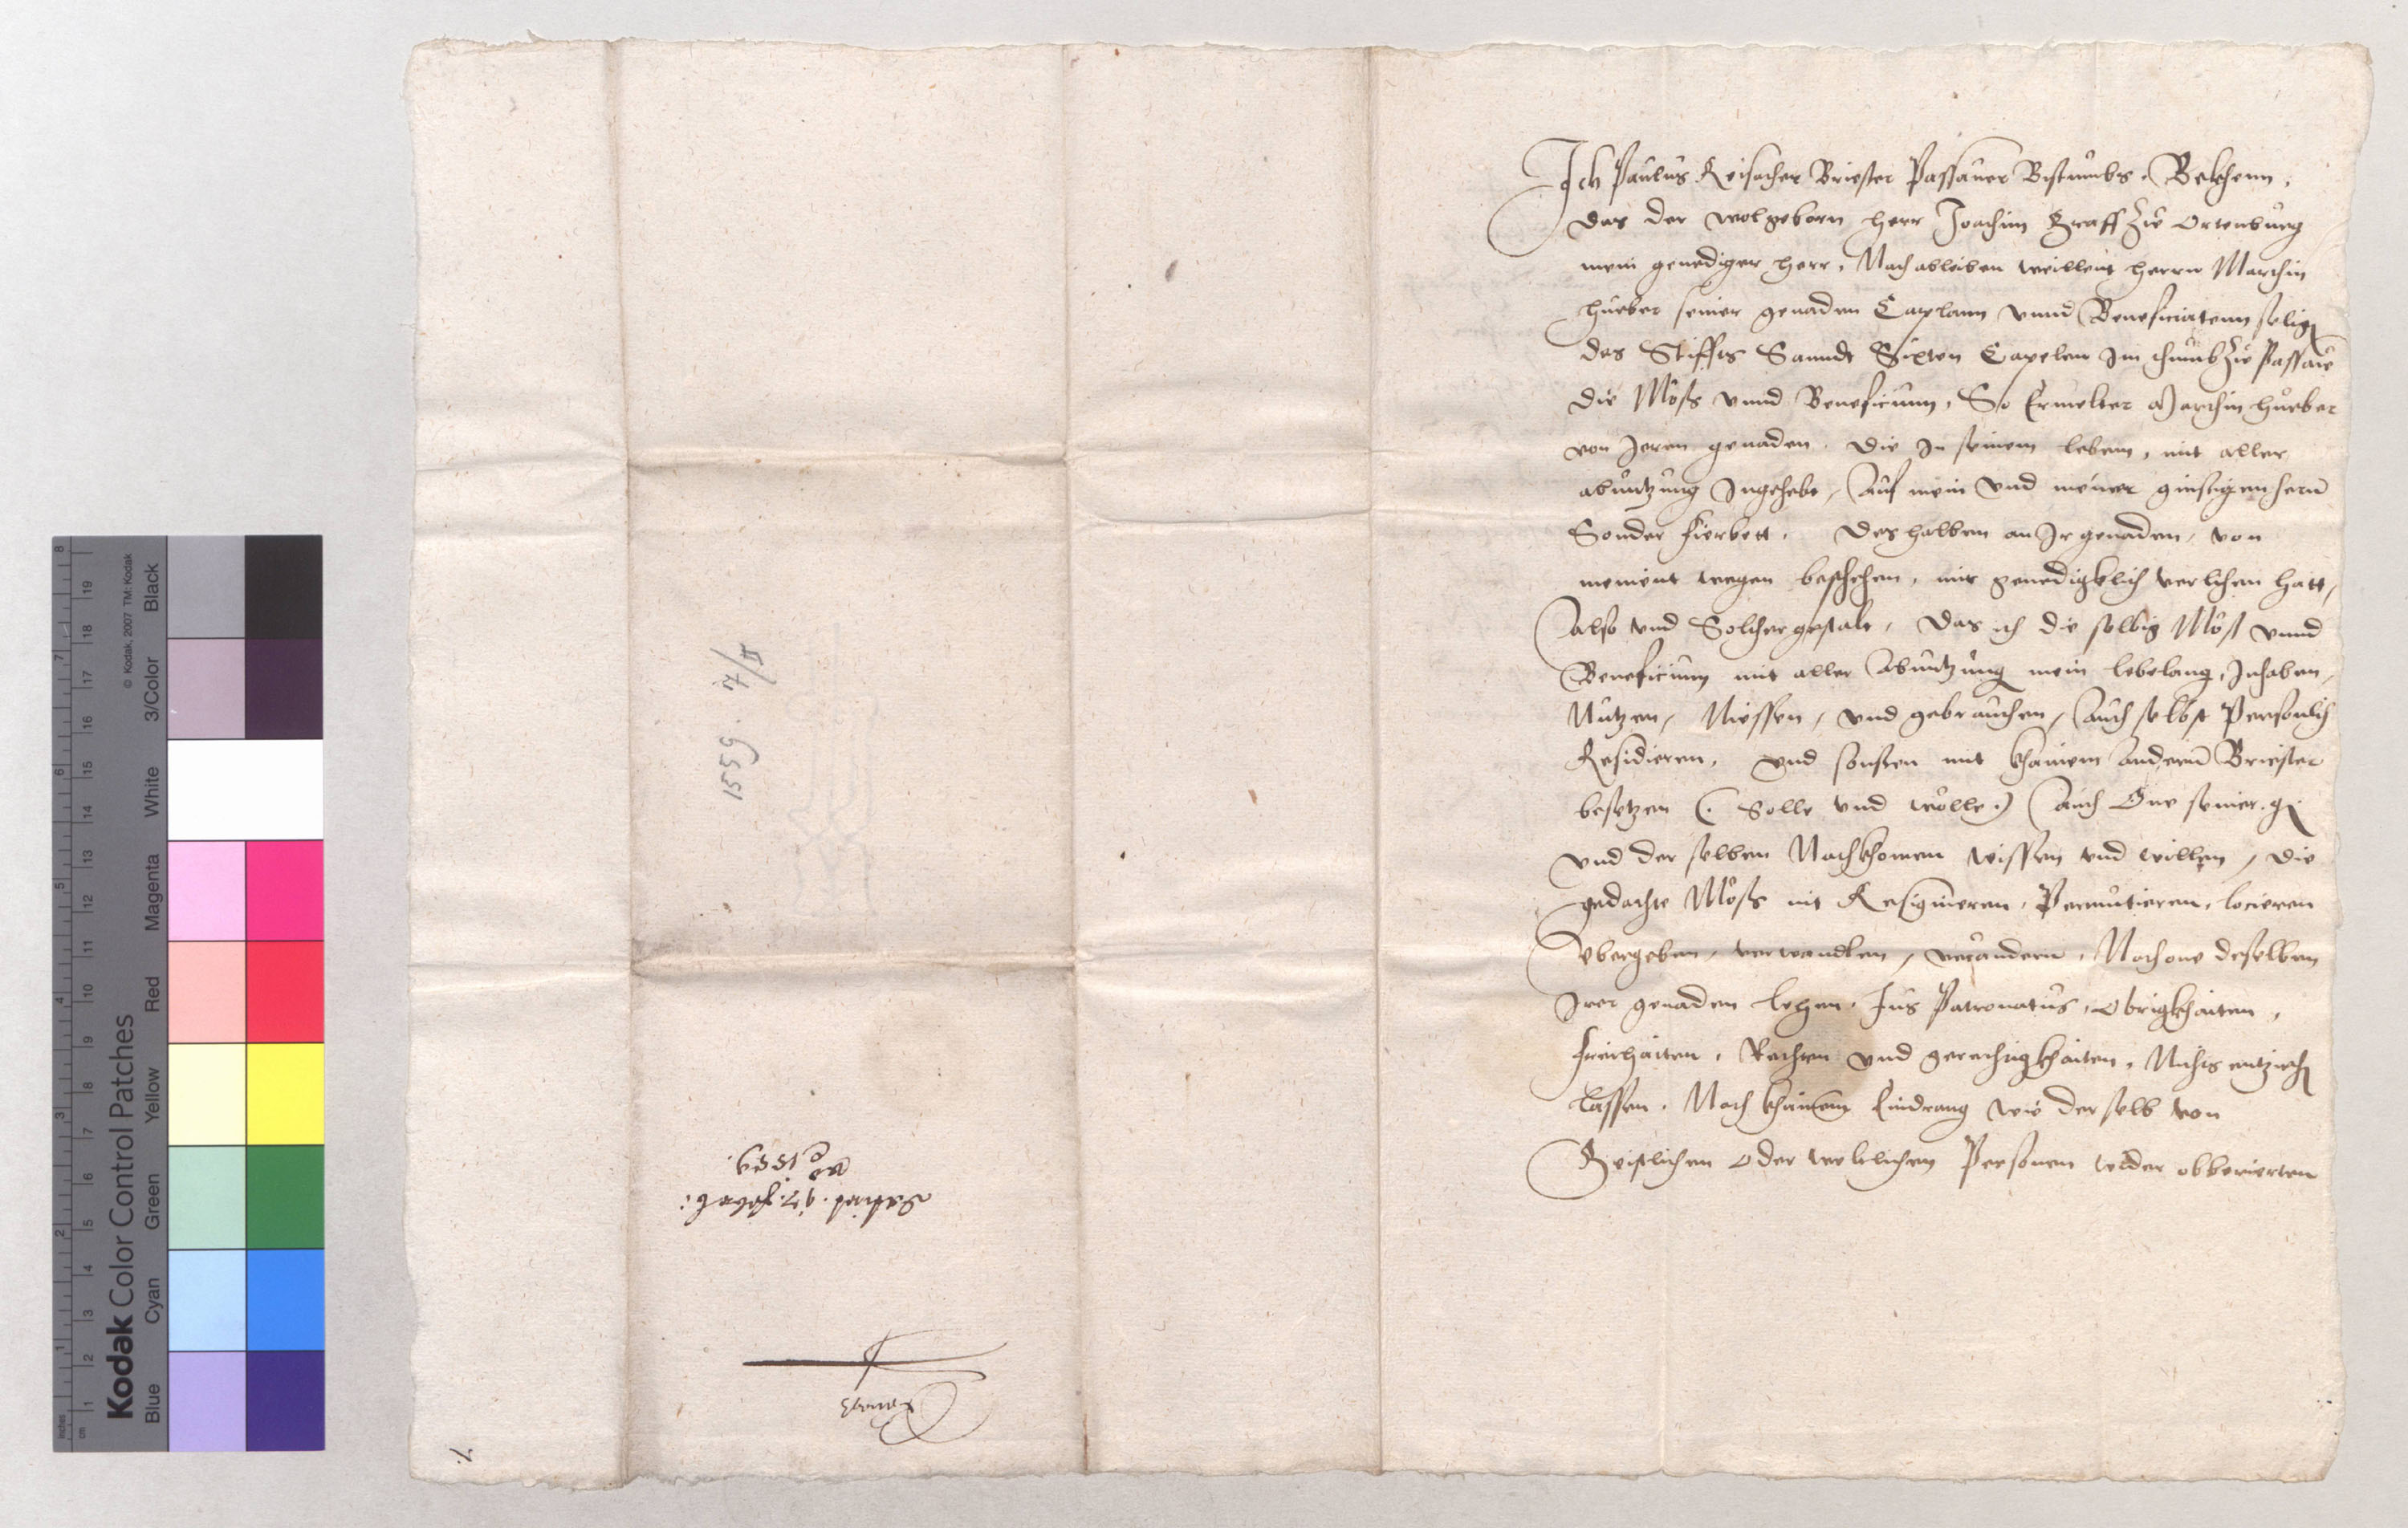 Ich Paulus Reisacher Briester Passauer Bistumbs. Bekhenn,
das der wolgeborn herr Joachim Graff Zu Ortenburg
mein genediger herr, Nach ableiben weillent herrn Marthin
hueber seiner genaden Caplann vnnd Beneficiatenn selig
des Stiffts Sanndt Sixten Capelen Im thumb Zu Passau
die Möss vnnd Beneficium, So Ermelter Marthin hueber
von Jeren genaden, die In seinem leben, mit aller
abnutzung Ingehebt, Auf mein und meiner ginstigen hern
Sonder fierbett. Deshalben an Ir genaden, von
meinent wegen beschehen, mir genedigklich verlichen hatt,
Also und Solcher gestalt, Das ich die selbig Möß vnnd
Beneficium mit aller Abnutzung mein lebelang, Inhaben,
Nutzen, Niessen, und gebrauchen, Auch selbst Persönlich
Residieren, Und sonsten mit khainem andern Briester
besetzen (. Solle und wölle.) Auch One seiner g.
und der selben Nachkhomen wissen und willen, die
gedachte Möss nit Resignieren, Permutieren, locieren
Vbergeben, verwandlen, verändern, Noch one deselben
Irer genaden lehen, Jus Patronatus, Obrigkhaiten,
freihaiten, Rechten und gerechtigkhaiten, Nichts entziehen
lassen, Noch khainem Eindrang wie der selb von
Geistlichen Oder weltlichen Personen wider obberierten
1559. 4/II
Datirt. 97.
Ao 1559.
Kodak Color Control Patches
© Kodak, 2007 TM: Kodak
Blue Cyan Green Yellow Red Magenta White 3/Color Black
inches 1 2 3 4 5 6 7 8
cm 1 2 3 4 5 6 7 8 9 10 11 12 13 14 15 16 17 18 19